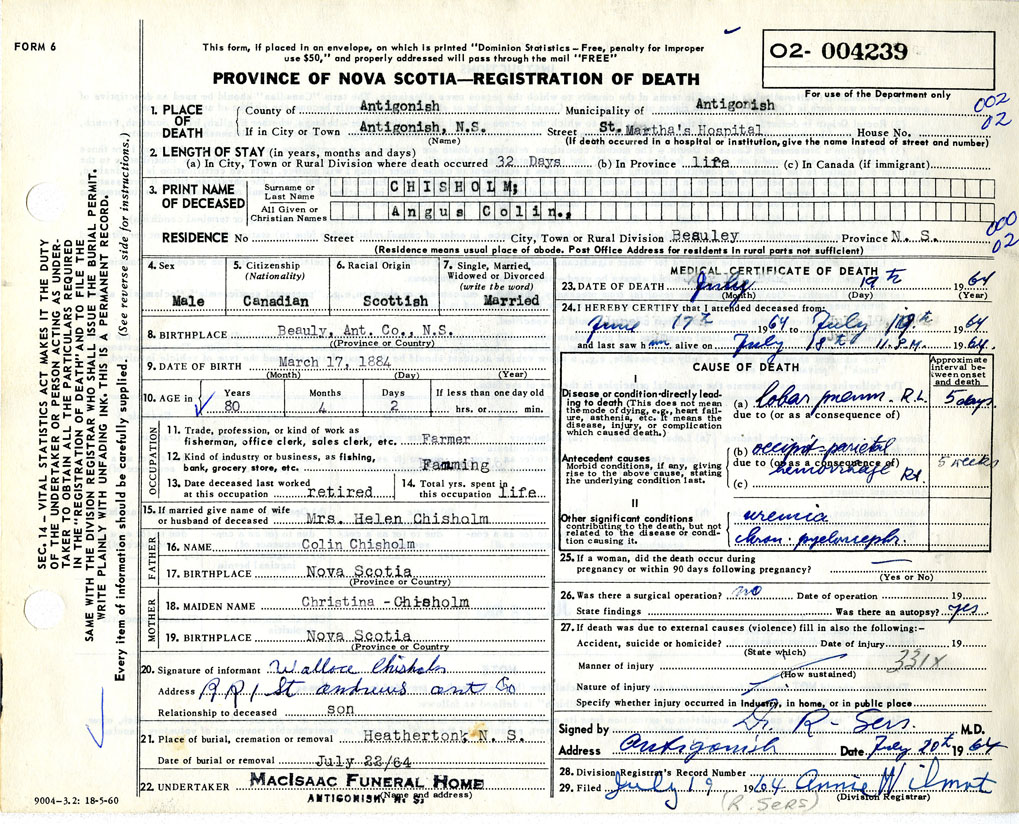 FORM 6
This form, if placed in an envelope, on which is printed "Dominion Statistics – Free, penalty for improper
use $50," and properly addressed will pass through the mail "FREE"
PROVINCE OF NOVA SCOTIA—REGISTRATION OF DEATH
O2- 004239
For use of the Department only
002
02
1. PLACE OF DEATH
County of Antigonish Municipality of Antigonish
If in City or Town Antigonish, N.S. Street St. Martha's Hospital House No.
(Name) (If death occurred in a hospital or institution, give the name instead of street and number)
2. LENGTH OF STAY (in years, months and days)
(a) In City, Town or Rural Division where death occurred 32 Days (b) In Province life (c) In Canada (if immigrant)
3. PRINT NAME OF DECEASED
Surname or Last Name CHISHOLM;
All Given or Christian Names Angus Colin.,
000
02
RESIDENCE No Street City, Town or Rural Division Beauley Province N. S.
(Residence means usual place of abode. Post Office Address for residents in rural parts not sufficient)
SEC. 14 – VITAL STATISTICS ACT MAKES IT THE DUTY
OF THE UNDERTAKER OR PERSON ACTING AS UNDER-
TAKER TO OBTAIN ALL THE PARTICULARS REQUIRED
IN THE "REGISTRATION OF DEATH" AND TO FILE THE
SAME WITH THE DIVISION REGISTRAR WHO SHALL ISSUE THE BURIAL PERMIT.
WRITE PLAINLY WITH UNFADING INK. THIS IS A PERMANENT RECORD.
Every item of information should be carefully supplied. (See reverse side for instructions.)
4. Sex
Male
5. Citizenship
(Nationality)
Canadian
6. Racial Origin
Scottish
7. Single, Married,
Widowed or Divorced
(write the word)
Married
8. BIRTHPLACE Beauly, Ant. Co., N.S.
(Province or Country)
9. DATE OF BIRTH March 17, 1884
(Month) (Day) (Year)
10. AGE in Years Months Days If less than one day old
80 4 2 hrs. or min.
OCCUPATION
11. Trade, profession, or kind of work as
fisherman, office clerk, sales clerk, etc. Farmer
12. Kind of industry or business, as fishing,
bank, grocery store, etc. Famming
13. Date deceased last worked
at this occupation retired
14. Total yrs. spent in
this occupation life
15. If married give name of wife
or husband of deceased Mrs. Helen Chisholm
FATHER
16. NAME Colin Chisholm
17. BIRTHPLACE Nova Scotia
(Province or Country)
MOTHER
18. MAIDEN NAME Christina - Chisholm
19. BIRTHPLACE Nova Scotia
(Province or Country)
20. Signature of informant Wallace Chisholm
Address R R 1 St andrews ant Co
Relationship to deceased son
21. Place of burial, cremation or removal Heathertonk N. S.
Date of burial or removal July 22/64
22. UNDERTAKER MACISAAC FUNERAL HOME
ANTIGONISH, N. S.
(Name and address)
9004-3.2: 18-5-60
MEDICAL CERTIFICATE OF DEATH
23. DATE OF DEATH July 19th 1964
(Month) (Day) (Year)
24. I HEREBY CERTIFY that I attended deceased from:
June 17th 1964 to July 19th 1964
and last saw him alive on July 18th 11 P.M. 1964
CAUSE OF DEATH
Approximate
interval be-
tween onset
and death
I
Disease or condition directly lead-
ing to death (This does not mean
the mode of dying, e.g., heart fail-
ure, asthenia, etc. It means the
disease, injury, or complication
which caused death.)
(a) lobar pneum. R.L. 5 days
due to (or as a consequence of)
Antecedent causes
Morbid conditions, if any, giving
rise to the above cause, stating
the underlying condition last.
(b) occipit-parietal
due to (or as a consequence of) 5 weeks
(c) hemorrhage Rt.
II
Other significant conditions
contributing to the death, but not
related to the disease or condi-
tion causing it.
uremia
chron. pyeloneph.
25. If a woman, did the death occur during
pregnancy or within 90 days following pregnancy? —
(Yes or No)
26. Was there a surgical operation? no Date of operation 19
State findings Was there an autopsy? yes
27. If death was due to external causes (violence) fill in also the following:–
Accident, suicide or homicide? Date of injury 19
(State which)
Manner of injury 331X
(How sustained)
Nature of injury
Specify whether injury occurred in industry, in home, or in public place
Signed by Dr R - Sers. M.D.
Address Antigonish Date July 20th 1964
28. Division Registrar's Record Number
29. Filed July 19 1964 Annie Wilmot
(Division Registrar)
(R. SERS)